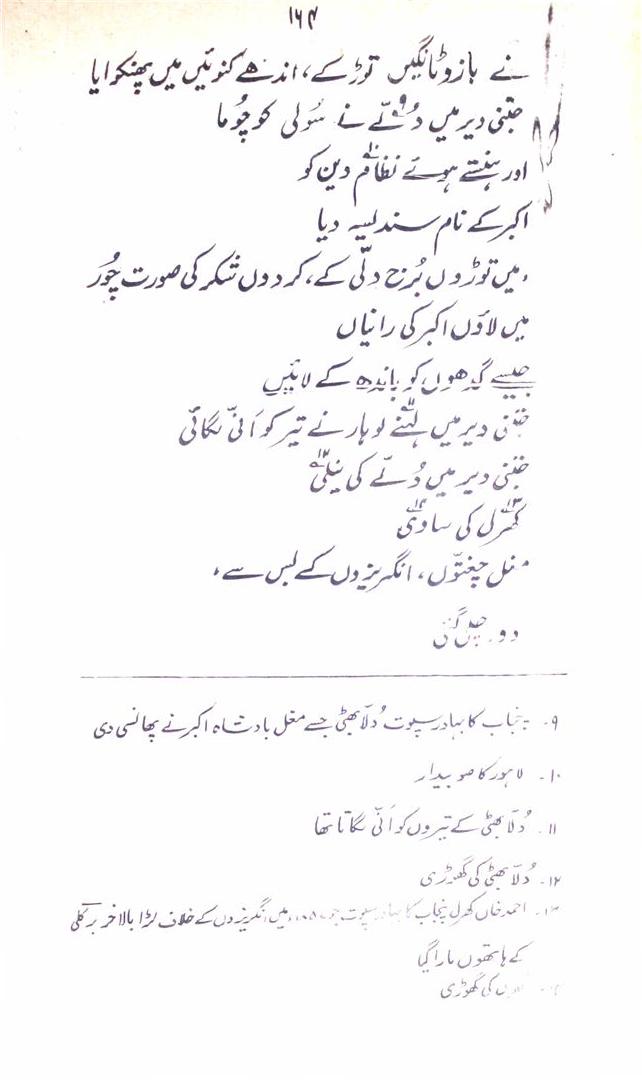 ۱۶۴
نے بازو ٹانگیں توڑ کے، اندھے کنوئیں میں پھنکوایا
جتنی دیر میں دُلّے۹ نے سُولی کو چُوما
اور ہنستے ہوئے نظام۱۰ دین کو
اکبر کے نام سندیسہ دیا
،میں توڑوں بُرج دلّی کے، کردوں شکر کی صورت چُور
میں لاؤں اکبر کی رانیاں
جیسے گدھوں کو باندھ کے لائیں
جتنی دیر میں لہنے۱۱ لوہار نے تیر کو اَنّی لگائی
جتنی دیر میں دُلّے کی نیلی۱۲
کھرل۱۳ کی ساوی۱۴
مغل چغتّوں، انگریزوں کے بس سے،
دور چلی گئی
۹۔ پنجاب کا بہادر سپوت دُلّا بھٹی جسے مغل بادشاہ اکبر نے پھانسی دی
۱۰۔ لاہور کا صوبیدار
۱۱۔ دُلّا بھٹی کے تیروں کو اَنّی لگاتا تھا
۱۲۔ دُلّا بھٹی کی گھوڑی
۱۳۔ احمد خاں کھرل پنجاب کا بہادر سپوت جو میں انگریزوں کے خلاف لڑا بالآخر برکلی
کے ہاتھوں مارا گیا
کی گھوڑی